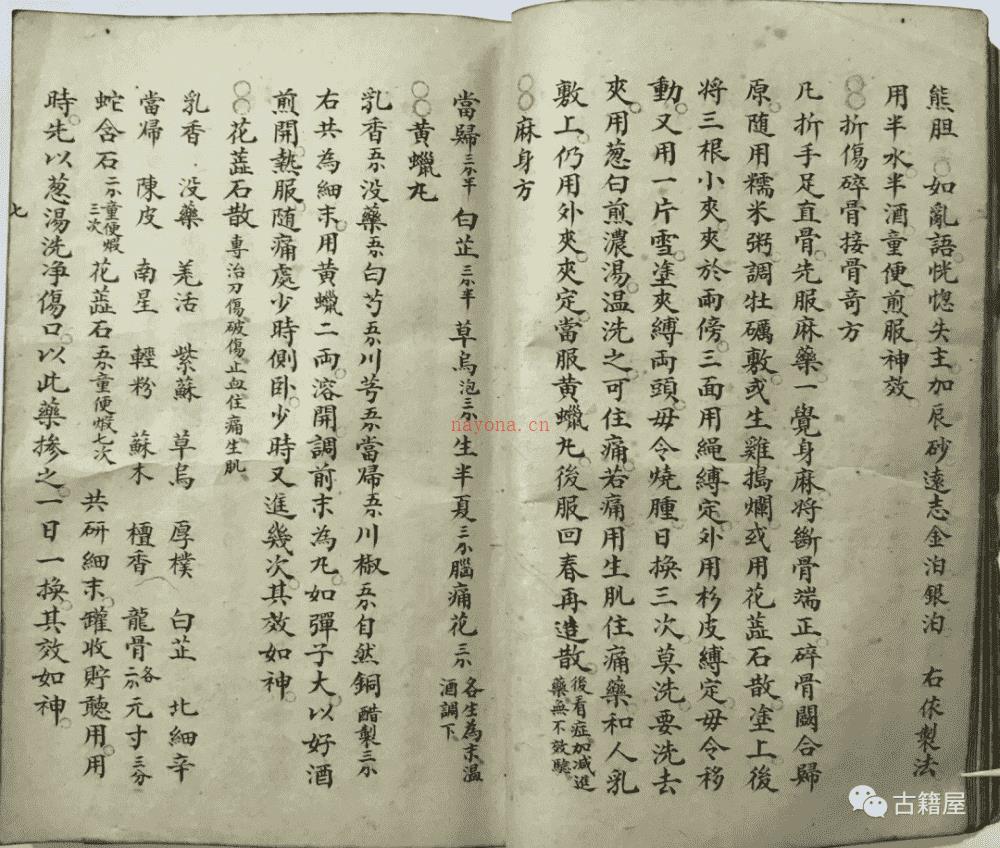 熊胆 ○如亂語恍惚失主加辰砂遠志金泊銀泊 右依製法
用半水半酒童便煎服神效
○○折傷碎骨接骨奇方
凡折手足直骨先服麻藥一覺身麻將斷骨端正碎骨鬪合歸
原随用糯米粥調牡礪敷或生雞搗爛或用花蕋石散塗上後
將三根小夾夾於兩傍三面用繩縛定外用杉皮縛定毋令移
動又用一片雪塗夾縛両頭毋令燒腫日換三次莫洗要洗去
夾用葱白煎濃湯温洗之可住痛若痛用生肌住痛藥和人乳
敷上仍用外夾夾定當服黄蠟九後服回春再造散後看症加減進藥無不效驗
○○麻身方
當歸三分半 白芷三分半 草烏泡三分 生半夏三分 腦痛花三分 各生為末温酒調下
○○黄蠟九
乳香五分没藥五分白芍五分川芎五分當帰五分川椒五分自然銅醋製三分
右共為細末用黄蠟二両溶開調前末為九如彈子大以好酒
煎開熱服随痛處少時側卧少時又進幾次其效如神
○○花蕋石散專治刀傷破傷止血住痛生肌
乳香 没藥 羌活 紫蘇 草烏 厚樸 白芷 北細辛
當帰 陳皮 南星 輕粉 蘇木 檀香 龍骨各二分元寸三分
蛇含石二分童便煅三次 花蕋石五分童便煅七次 共研細末罐收貯聽用用
時先以葱湯洗净傷口以此藥掺之一日一換其效如神
七
nayona.cn
古籍屋